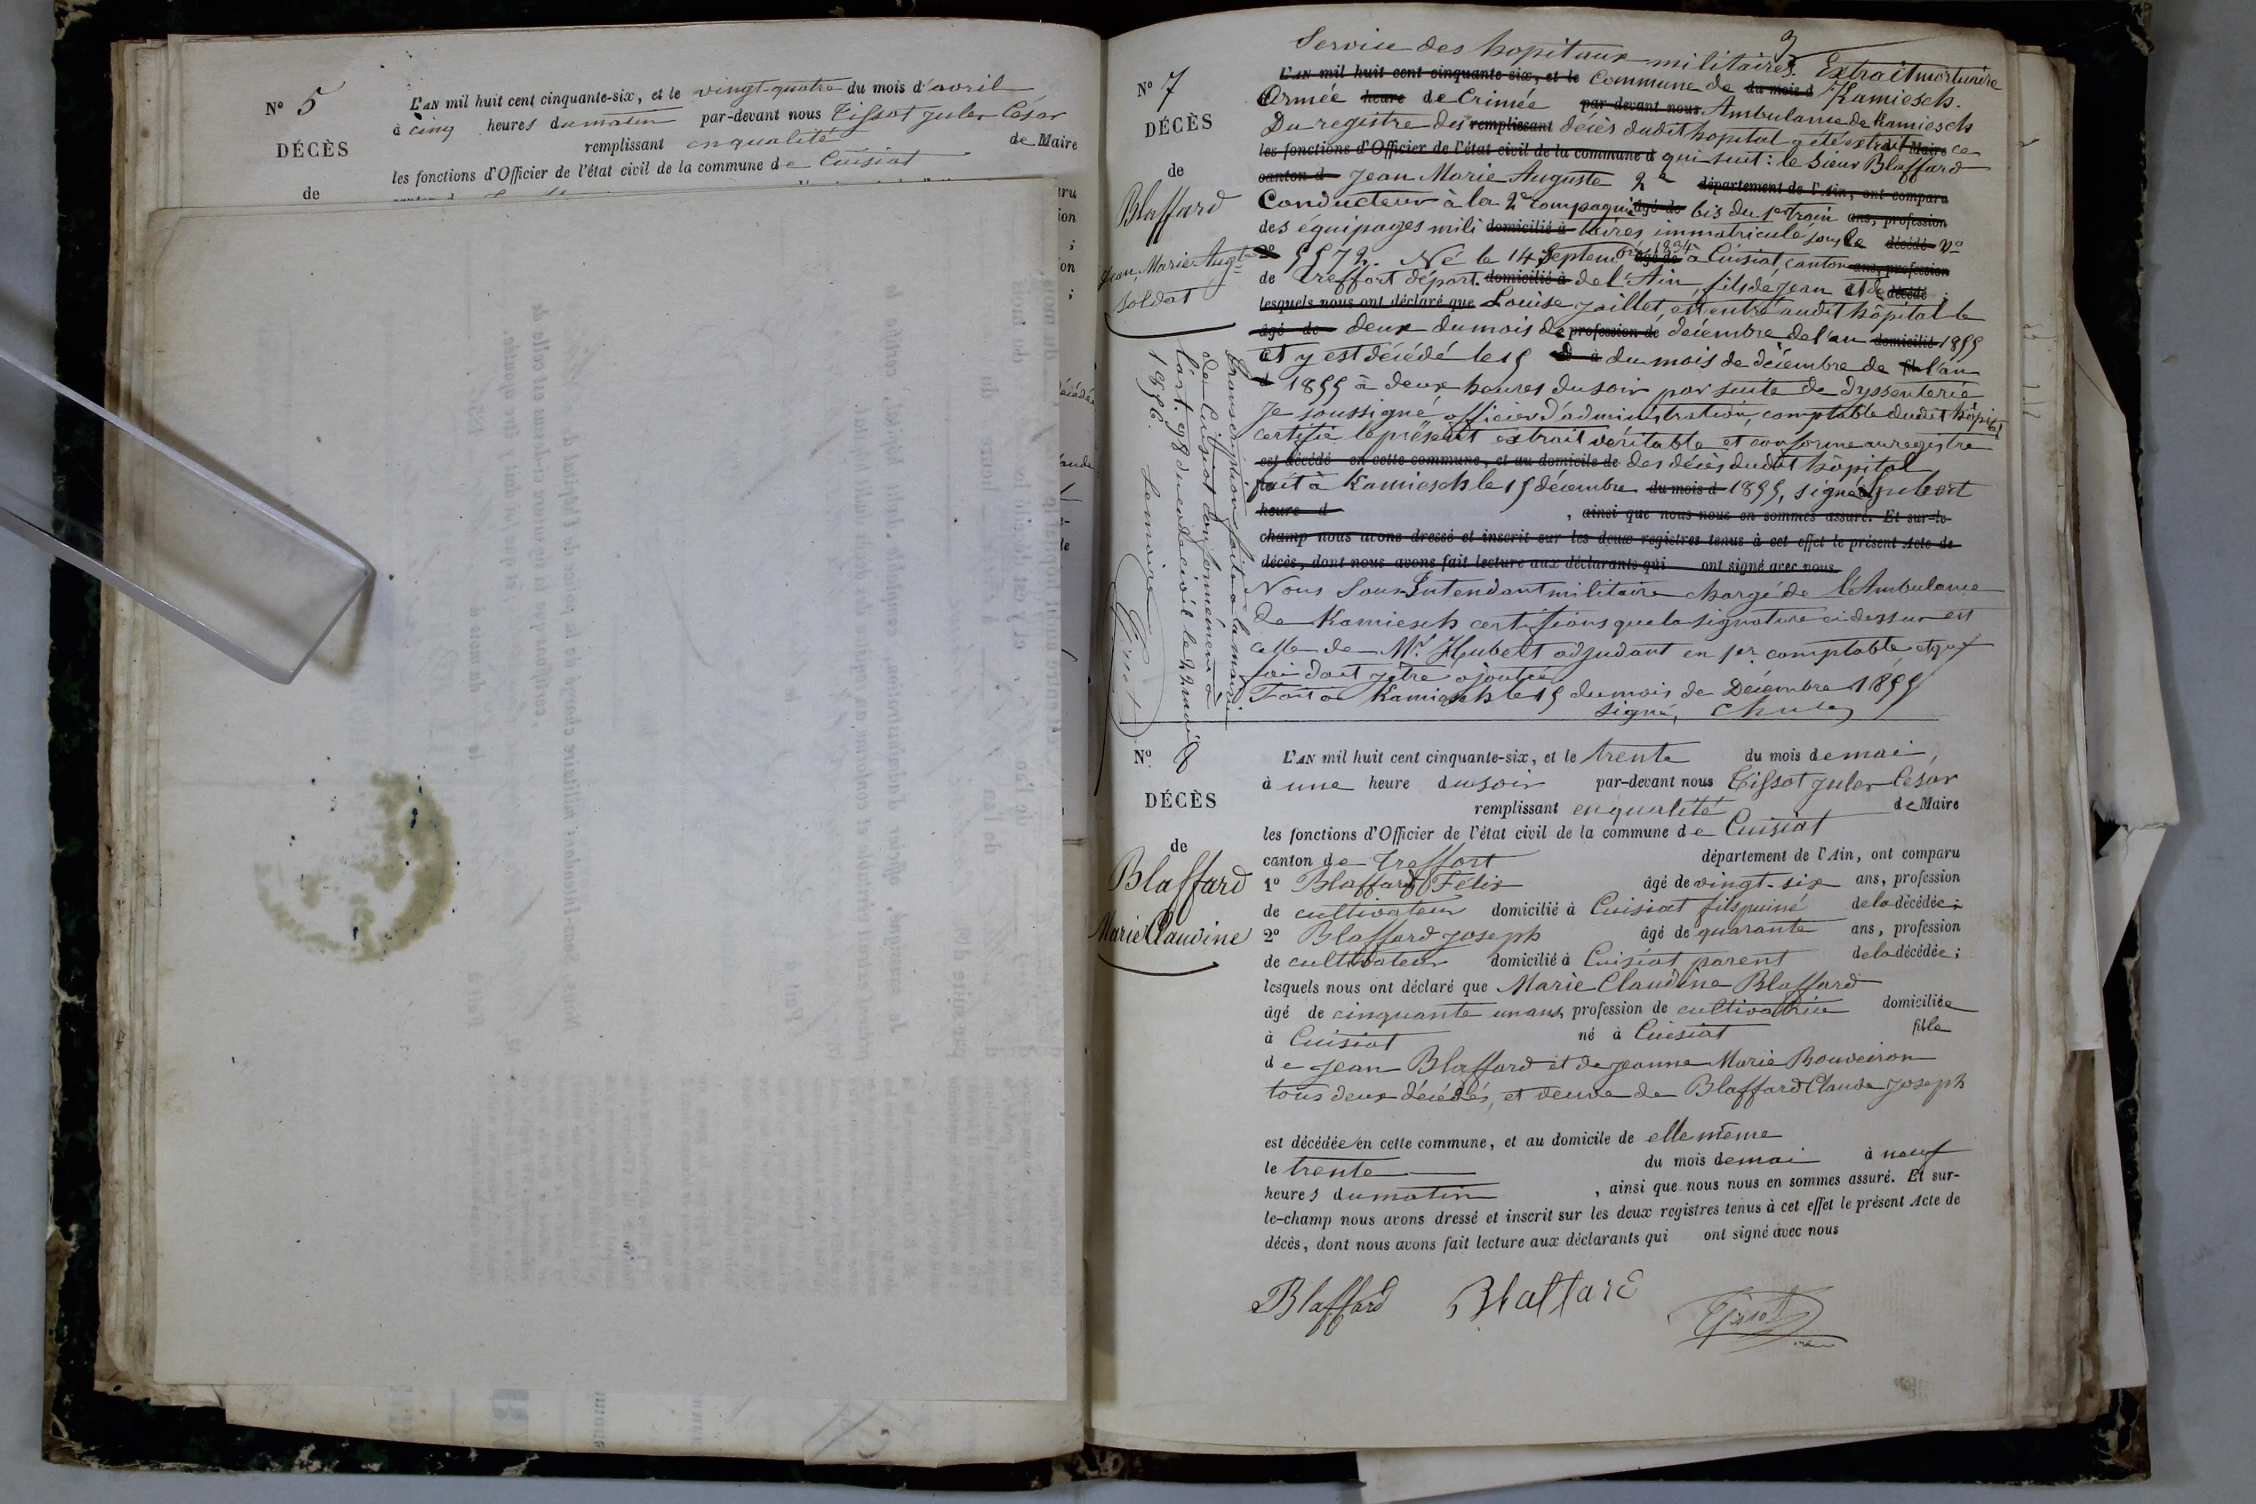 N° 5
DÉCÈS
de
L'AN mil huit cent cinquante-six, et le vingt-quatre du mois d'avril
à cinq heures du matin par-devant nous Tissot Jules César
remplissant en qualité de Maire
les fonctions d'Officier de l'état civil de la commune de Cuisiat
3
Service des hopitaux militaires. Extrait mortuaire
N° 7
DÉCÈS
de
Blaffard
Jean Marie Augte
soldat
L'AN mil huit cent cinquante-six, et le Commune de du mois d Kamiesch.
Armée heure de Crimée par-devant nous Ambulance de Kamiesch
Du registre des remplissant décès dudit hopital a été extrait Maire ce
les fonctions d'Officier de l'état civil de la commune d qui suit : le Sieur Blaffard
canton d Jean Marie Auguste 2e département de l'Ain, ont comparu
Conducteur à la 2e compagnie âgé de bis du 1er train ans, profession
des équipages mili domicilié à taires, immatriculé sous le décédé No
2° 5572. Né le 14 Septembre 1834 âgé de à Cuisiat, canton ans, profession
de Treffort départ. domicilié à de l'Ain, fils de Jean et de décédé ;
lesquels nous ont déclaré que Louise Jaillet, est entré audit hôpital le
âgé de deux du mois de profession de décembre de l'an domicilié 1855
et y est décédé le 15 d à du mois de décembre de fil l'an
d 1855 à deux heures du soir par suite de dyssenterie
Je soussigné officier d'administration, comptable dudit hôpital
certifie le présent extrait véritable et conforme au registre
est décédé en cette commune, et au domicile de des décès dudit hôpital
fait à Kamiesch le 15 décembre du mois d 1855, signé Hubert
heure d , ainsi que nous nous en sommes assuré. Et sur-le-
champ nous avons dressé et inscrit sur les deux registres tenus à cet effet le présent Acte de
décès, dont nous avons fait lecture aux déclarants qui ont signé avec nous
Nous Sous-Intendant militaire chargé de l'Ambulance
de Kamiesch certifions que la signature ci dessus est
celle de Mr. Hubert adjudant en 1er comptable et que
foi doit y être ajoutée.
Fait à Kamiesch le 15 du mois de Décembre 1855
signé,
Transcription faite à la mairie
de Cuisiat conformément à
l'art. 98 du code civil le 22 mai
1856. Le maire
N° 8
DÉCÈS
de
Blaffard
Marie Claudine
L'AN mil huit cent cinquante-six, et le trente du mois de mai,
à une heure du soir par-devant nous Tissot Jules César
remplissant en qualité de Maire
les fonctions d'Officier de l'état civil de la commune de Cuisiat
canton de Treffort département de l'Ain, ont comparu
1° Blaffard Félix âgé de vingt-six ans, profession
de cultivateur domicilié à Cuisiat fils puiné de la décédée ;
2° Blaffard Joseph âgé de quarante ans, profession
de cultivateur domicilié à Cuisiat parent de la décédée ;
lesquels nous ont déclaré que Marie Claudine Blaffard
âgé de cinquante un ans, profession de cultivatrice domiciliée
à Cuisiat né à Cuisiat fille
de Jean Blaffard et de Jeanne Marie Bouveiron
tous deux décédés, et veuve de Blaffard Claude Joseph
est décédée en cette commune, et au domicile de elle même
le trente du mois de mai à neuf
heures du matin , ainsi que nous nous en sommes assuré. Et sur-
le-champ nous avons dressé et inscrit sur les deux registres tenus à cet effet le présent Acte de
décès, dont nous avons fait lecture aux déclarants qui ont signé avec nous
Blaffard Blaffard Tissot